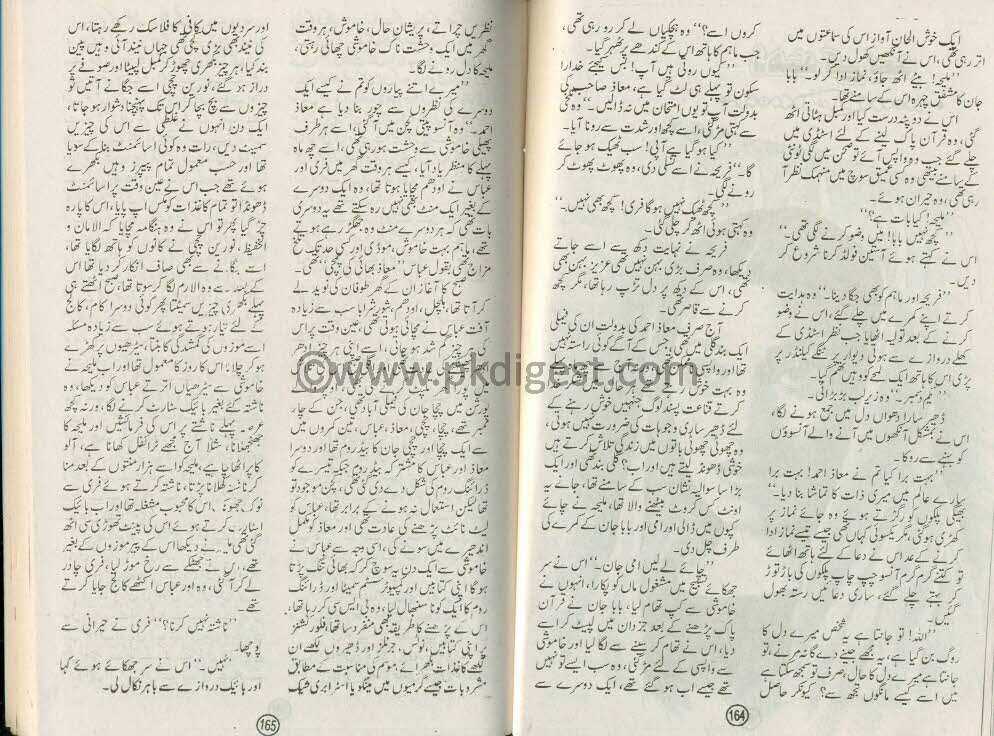 ایک خوش الحان آواز اس کی سماعتوں میں
اتر رہی تھی، اس نے آنکھیں کھول دیں۔
”ملیحہ! بیٹے اٹھ جاؤ، نماز ادا کر لو۔“ بابا
جان کا مشفق چہرہ اس کے سامنے تھا۔
اس نے دوپٹہ درست کیا اور سلیپر ہٹاتی اٹھ
گئی، وہ قرآن پاک لینے کے لئے اسٹڈی میں
چلے گئے جب وہ واپس آئے تو صحن میں لگی ٹونٹی
کے سامنے بیٹھی وہ کسی عمیق سوچ میں منہمک نظر آ
رہی تھی، وہ حیران ہوئے۔
”ملیحہ! کیا بات ہے؟“
”کچھ نہیں بابا! میں وضو کرنے لگی تھی۔“
اس نے کہتے ہوئے آستین فولڈ کرنا شروع کر
دیں۔
”فریحہ اور ماہم کو بھی جگا دینا۔“ وہ ہدایت
کرتے اپنے کمرے میں چلے گئے، اس نے وضو
کرنے کے بعد تولیہ اٹھایا جب نظر اسٹڈی کے
کھلے دروازے سے ہوتی دیوار پر ٹنگے کیلنڈر پر
پڑی اس کا ہاتھ ایک لمحے کو وہیں تھم گیا۔
”یکم دسمبر۔“ وہ زیر لب بڑبڑائی۔
ڈھیر سارا دھواں دل میں جمع ہونے لگا،
اس نے بمشکل آنکھوں میں آنے والے آنسوؤں
کو بہنے سے روکا۔
”بہت برا کیا تم نے معاذ احمد! بہت برا
سارے عالم میں میری ذات کا تماشا بنا دیا۔“
بھیگی پلکوں کو رگڑتے ہوئے وہ جائے نماز پر
کھڑی ہو گئی، مگر یکسوئی کہاں تھی جیسے تیسے نماز ادا
کرنے کے بعد اس نے دعا کے لئے ہاتھ اٹھائے
تو کتنے گرم گرم آنسو چپ چاپ پلکوں کی باڑ توڑ
کر بہتے چلے گئے، ساری دعائیں رستہ بھول
گئیں۔
”اللہ! تو جانتا ہے یہ شخص میرے دل کا
روگ بن گیا ہے، یہ مجھے جینے دے گا نہ مرنے، تو
جانتا ہے میرے دل کا حال، صرف تو سمجھ سکتا ہے
میں اسے کیسے مانگوں تجھ سے؟ کیونکر حاصل
کروں اسے؟“ وہ ہچکیاں لے کر رو رہی تھی،
جب ماہم کا ہاتھ اس کے کندھے پر ٹھہر گیا۔
”کیوں روتی ہیں آپا! بس کیجئے خدارا
سکون تو پہلے ہی لٹ گیا ہے، معاذ صاحب کی
بدولت آپ تو یوں امتحان میں نہ ڈالیں۔“ وہ
سے کہتی مڑ گئی، اسے کچھ اور شدت سے رونا آیا۔
”کیا ہو گیا ہے آپی! سب ٹھیک ہو جائے
گا۔“ فریحہ نے اسے تسلی دی، وہ پھوٹ پھوٹ کر
رونے لگی۔
”کچھ ٹھیک نہیں ہو گا فری! کچھ بھی نہیں۔“
وہ کہتی ہوئی اٹھ کر چلی گئی۔
فریحہ نے نہایت دکھ سے اسے جاتے
دیکھا، وہ صرف بڑی بہن نہیں تھی عزیز بہن بھی
تھی، اس کے دکھ پر دل تڑپ رہا تھا، مگر کچھ
کرنے سے قاصر تھی۔
آج صرف معاذ احمد کی بدولت ان کی فیملی
ایک بند گلی میں تھی، جس کے آگے کوئی راستہ نہیں
وہ بہت خوش
کرتے قناعت پسند لوگ جنہیں خوش رہنے کے
لئے ڈھیر ساری وجوہات کی ضرورت نہیں ہوتی،
وہ چھوٹی چھوٹی باتوں میں زندگی تلاش کرتے ہیں
خوشی ڈھونڈ لیتے ہیں اور اب؟ گلی بند تھی اور ایک
بڑا سا سوالیہ نشان سب کے سامنے تھا، جانے یہ
اونٹ کس کروٹ بیٹھنے والا تھا، ملیحہ نے چائے
کپوں میں ڈالی اور امی اور بابا جان کے کمرے کی
طرف چل دی۔
”چائے لے لیں امی جان۔“ اس نے سر
جھکائے تسبیح میں مشغول ماں کو پکارا، انہوں نے
خاموشی سے کپ تھام لیا، بابا جان نے قرآن
پاک پڑھنے کے بعد جزدان میں لپیٹ کر اسے
دیا، اس نے تھام کر سینے سے لگا لیا اور خاموشی
سے واپسی کے لئے مڑ گئی، وہ سب ایسے تو نہیں
تھے جیسے اب ہو گئے تھے، ایک دوسرے سے
164
نظریں چراتے، پریشان حال، خاموش، ہر وقت
گھر میں ایک وحشت ناک خاموشی چھائی رہتی،
ملیحہ کا دل رونے لگا۔
”میرے اتنے پیاروں کو تم نے کیسے ایک
دوسرے کی نظروں سے چور بنا دیا ہے معاذ
احمد۔“ وہ آنسو پیتی کچن میں آ گئی، اسے ہر طرف
پھیلی خاموشی سے وحشت ہو رہی تھی، اسے چھ ماہ
پہلے کا منظر یاد آیا، کیسے ہر وقت گھر میں فری اور
عباس نے اودھم مچایا ہوتا تھا، وہ ایک دوسرے
کے بغیر ایک منٹ بھی نہیں رہ سکتے تھے یہ دوسری
بات تھی کہ ہر دوسرے منٹ وہ جھگڑ رہے ہوتے
تھے، ماہم بہت خاموش، موڈی اور کسی حد تک تلخ
مزاج تھی بقول عباس ”معاذ بھائی کی چچی“ تھی۔
صبح کا آغاز ان کے گھر طوفان کی نوید لے
کر آتا تھا، ہلچل، اودھم، شور شرابا سب سے زیادہ
آفت عباس نے مچائی ہوتی تھی، عین وقت پر اس
کی ہر چیز گم شدہ ہو جاتی، اسے اپنی ہر چیز ادھر
پورشن میں چچا جان کی فیملی آباد تھی، جن کے چار
ممبر تھے، چچا، چچی، معاذ، عباس، تین کمروں میں
سے ایک چچا اور چچی جان کا بیڈ روم تھا اور ایک
معاذ اور عباس کا مشترکہ بیڈ روم جبکہ تیسرے کو
ڈرائنگ روم کی شکل دے دی گئی تھی، کچن موجود تو
تھا لیکن استعمال نہ ہونے کے برابر تھا، عباس کو
لیٹ نائٹ پڑھنے کی عادت تھی اور معاذ کو مکمل
اندھیرے میں سونے کی، اسی وجہ سے عباس نے
خاموشی سے ایک دن یہ سوچ کر کہ بھائی تنگ پڑتا
ہو گا اپنی کتابیں اور کمپیوٹر سسٹم سمیٹا اور ڈرائنگ
روم کا ایک کونا سنبھال لیا، وہ بی ایس سی کر رہا تھا،
اس کے پڑھنے کا طریقہ بھی منفرد سا تھا، فلور کشنز
پر اپنی کتابیں، نوٹس، جرنلز اور ڈھیروں لکھے ان
لکھے کاغذات بکھرائے، موسم کی مناسبت کے مطابق
مشروبات جیسے گرمیوں میں مینگو یا اسٹرابری شیک
اور سردیوں میں کافی کا فلاسک رکھے رہتا، اس
کی نیند بھی بڑی پکی تھی جہاں نیند آئی وہیں پین
بند کیا، ہر چیز بکھری چھوڑ کر کمبل لپیٹا اور صوفے پر
دراز ہو گئے، نورین چچی اسے جگانے آتیں تو
چیزوں سے بچ بچا کر اس تک پہنچنا دشوار ہو جاتا،
ایک دن انہوں نے غلطی سے اس کی چیزیں
سمیٹ دیں، رات وہ کوئی اسائنمنٹ بنا کے سویا
تھا اور حسب معمول تمام پیپرز وہیں بکھرے
ہوئے تھے جب اس نے عین وقت پر اسائنمنٹ
ڈھونڈا تو تمام کاغذات کو مکس اپ پایا، اس کا پارہ
چڑھ گیا پھر تو اس نے وہ ہنگامہ مچایا کہ الامان و
الحفیظ، نورین چچی نے کانوں کو ہاتھ لگایا تھا،
اسے جگانے سے بھی صاف انکار کر دیا تھا اس
کے بعد سے وہ الارم لگا کر سوتا تھا، صبح اٹھتے ہی
پہلے بکھری چیزیں سمیٹتا پھر کوئی دوسرا کام، کالج
کے لئے تیار ہوتے ہوئے سب سے زیادہ مسئلہ
اسے موزوں کی گمشدگی کا بنتا، سیڑھیوں پر کھڑے
ہو کر چلاتا، اس کا روز کا معمول تھا اور اب ماہم نے
خاموشی سے سیڑھیاں اترتے عباس کو دیکھا، وہ
ناشتہ کئے بغیر بائیک سٹارٹ کرنے لگا، ورنہ کچھ
عرصہ پہلے ناشتے پر اس کی فرمائشیں اور ملیحہ کا
جھنجھلانا، مثلاً آج مجھے ٹرائفل کھانا ہے، آلو
کا پراٹھا چاہیے، ملیحہ کو اسے ہزار منتوں کے بعد منا
کر ناشتہ کھلانا پڑتا، ناشتہ کرتے ہوئے فری سے
نوک جھونک اس کا محبوب مشغلہ تھا اور اب بائیک
اسٹارٹ کرتے ہوئے اس کی پینٹ تھوڑی سی اٹھ
گئی تھی ملیحہ نے دیکھا اس کے پیر موزوں کے بغیر
تھے، اس نے جھٹکے سے رخ موڑ لیا، فری چادر
لے کر آ گئی، وہ اور عباس اکٹھے کالج جایا کرتے
تھے۔
”ناشتہ نہیں کرنا؟“ فری نے حیرانی سے
پوچھا۔
”نہیں۔“ اس نے سر جھکائے ہوئے کہا
اور بائیک دروازے سے باہر نکال لی۔
165
©www.pkdigest.com